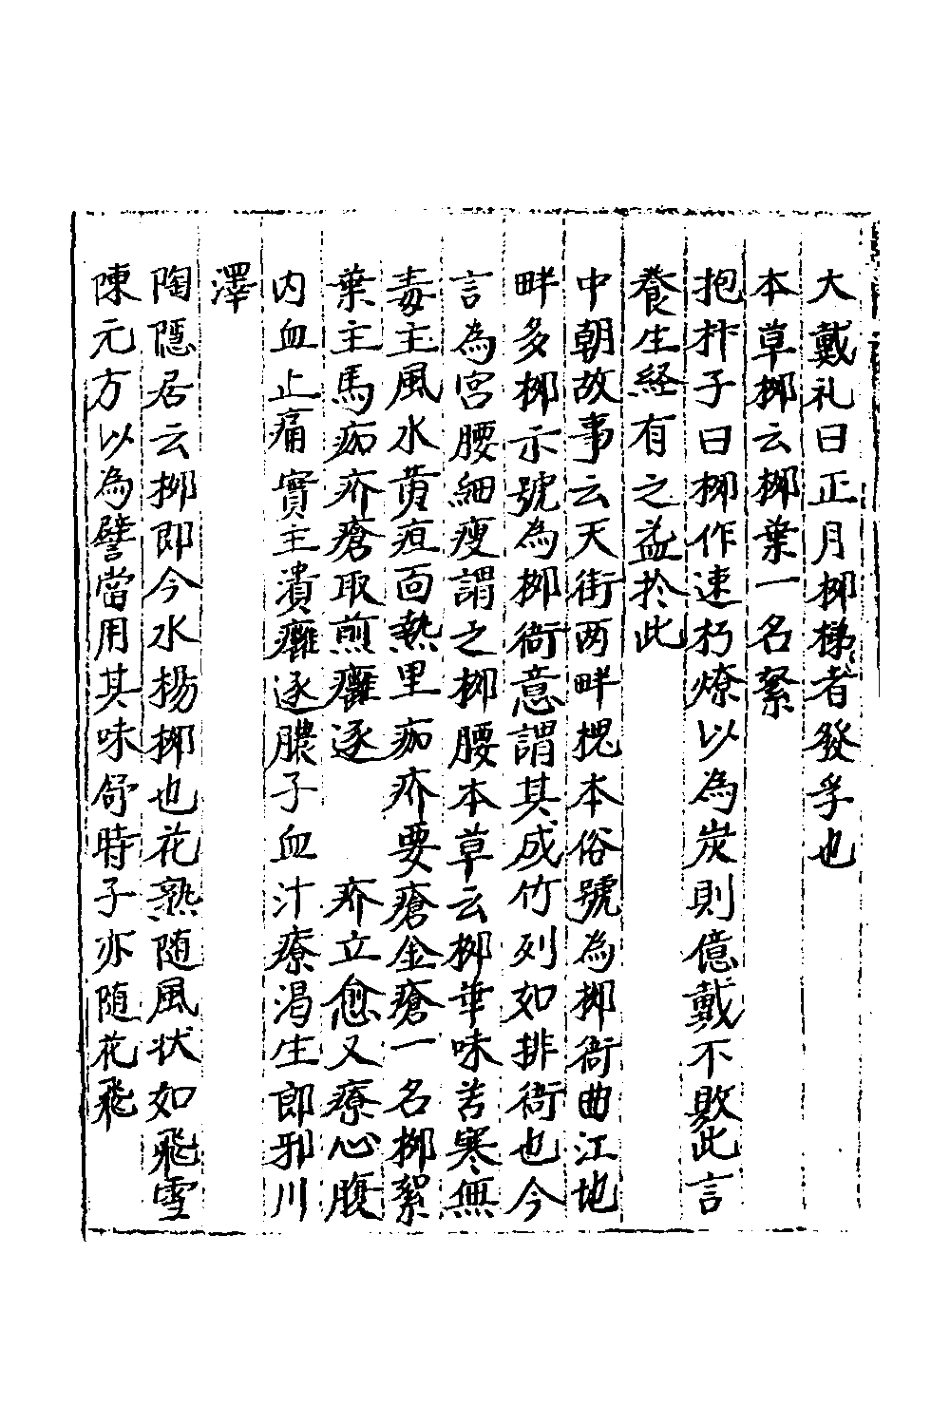 大戴礼曰正月桞梯者發孚也
本草桞云桞葉一名絮
抱朴子曰桞作速朽燎以為炭則億戴不敗此言
養生経有之益扵此
中朝故事云天街両畔槐本俗號為桞衙曲江地
畔多桞示號為桞衙意謂其成竹列如排衙也今
言為宮腰細瘦謂之桞腰本草云桞華味苦寒無
毒主風水黄疸面熱里痂疥要瘡金瘡一名桞絮
葉主馬疥疥瘡取煎癰逐　疥立愈又療心腹
内血止痛實主潰癰逐膿子血汁療渇生郎邪川
澤
陶隱居云桞即今水楊桞也花熟随風状如飛雪
陳元方以為譬當用其味舒時子亦随花飛